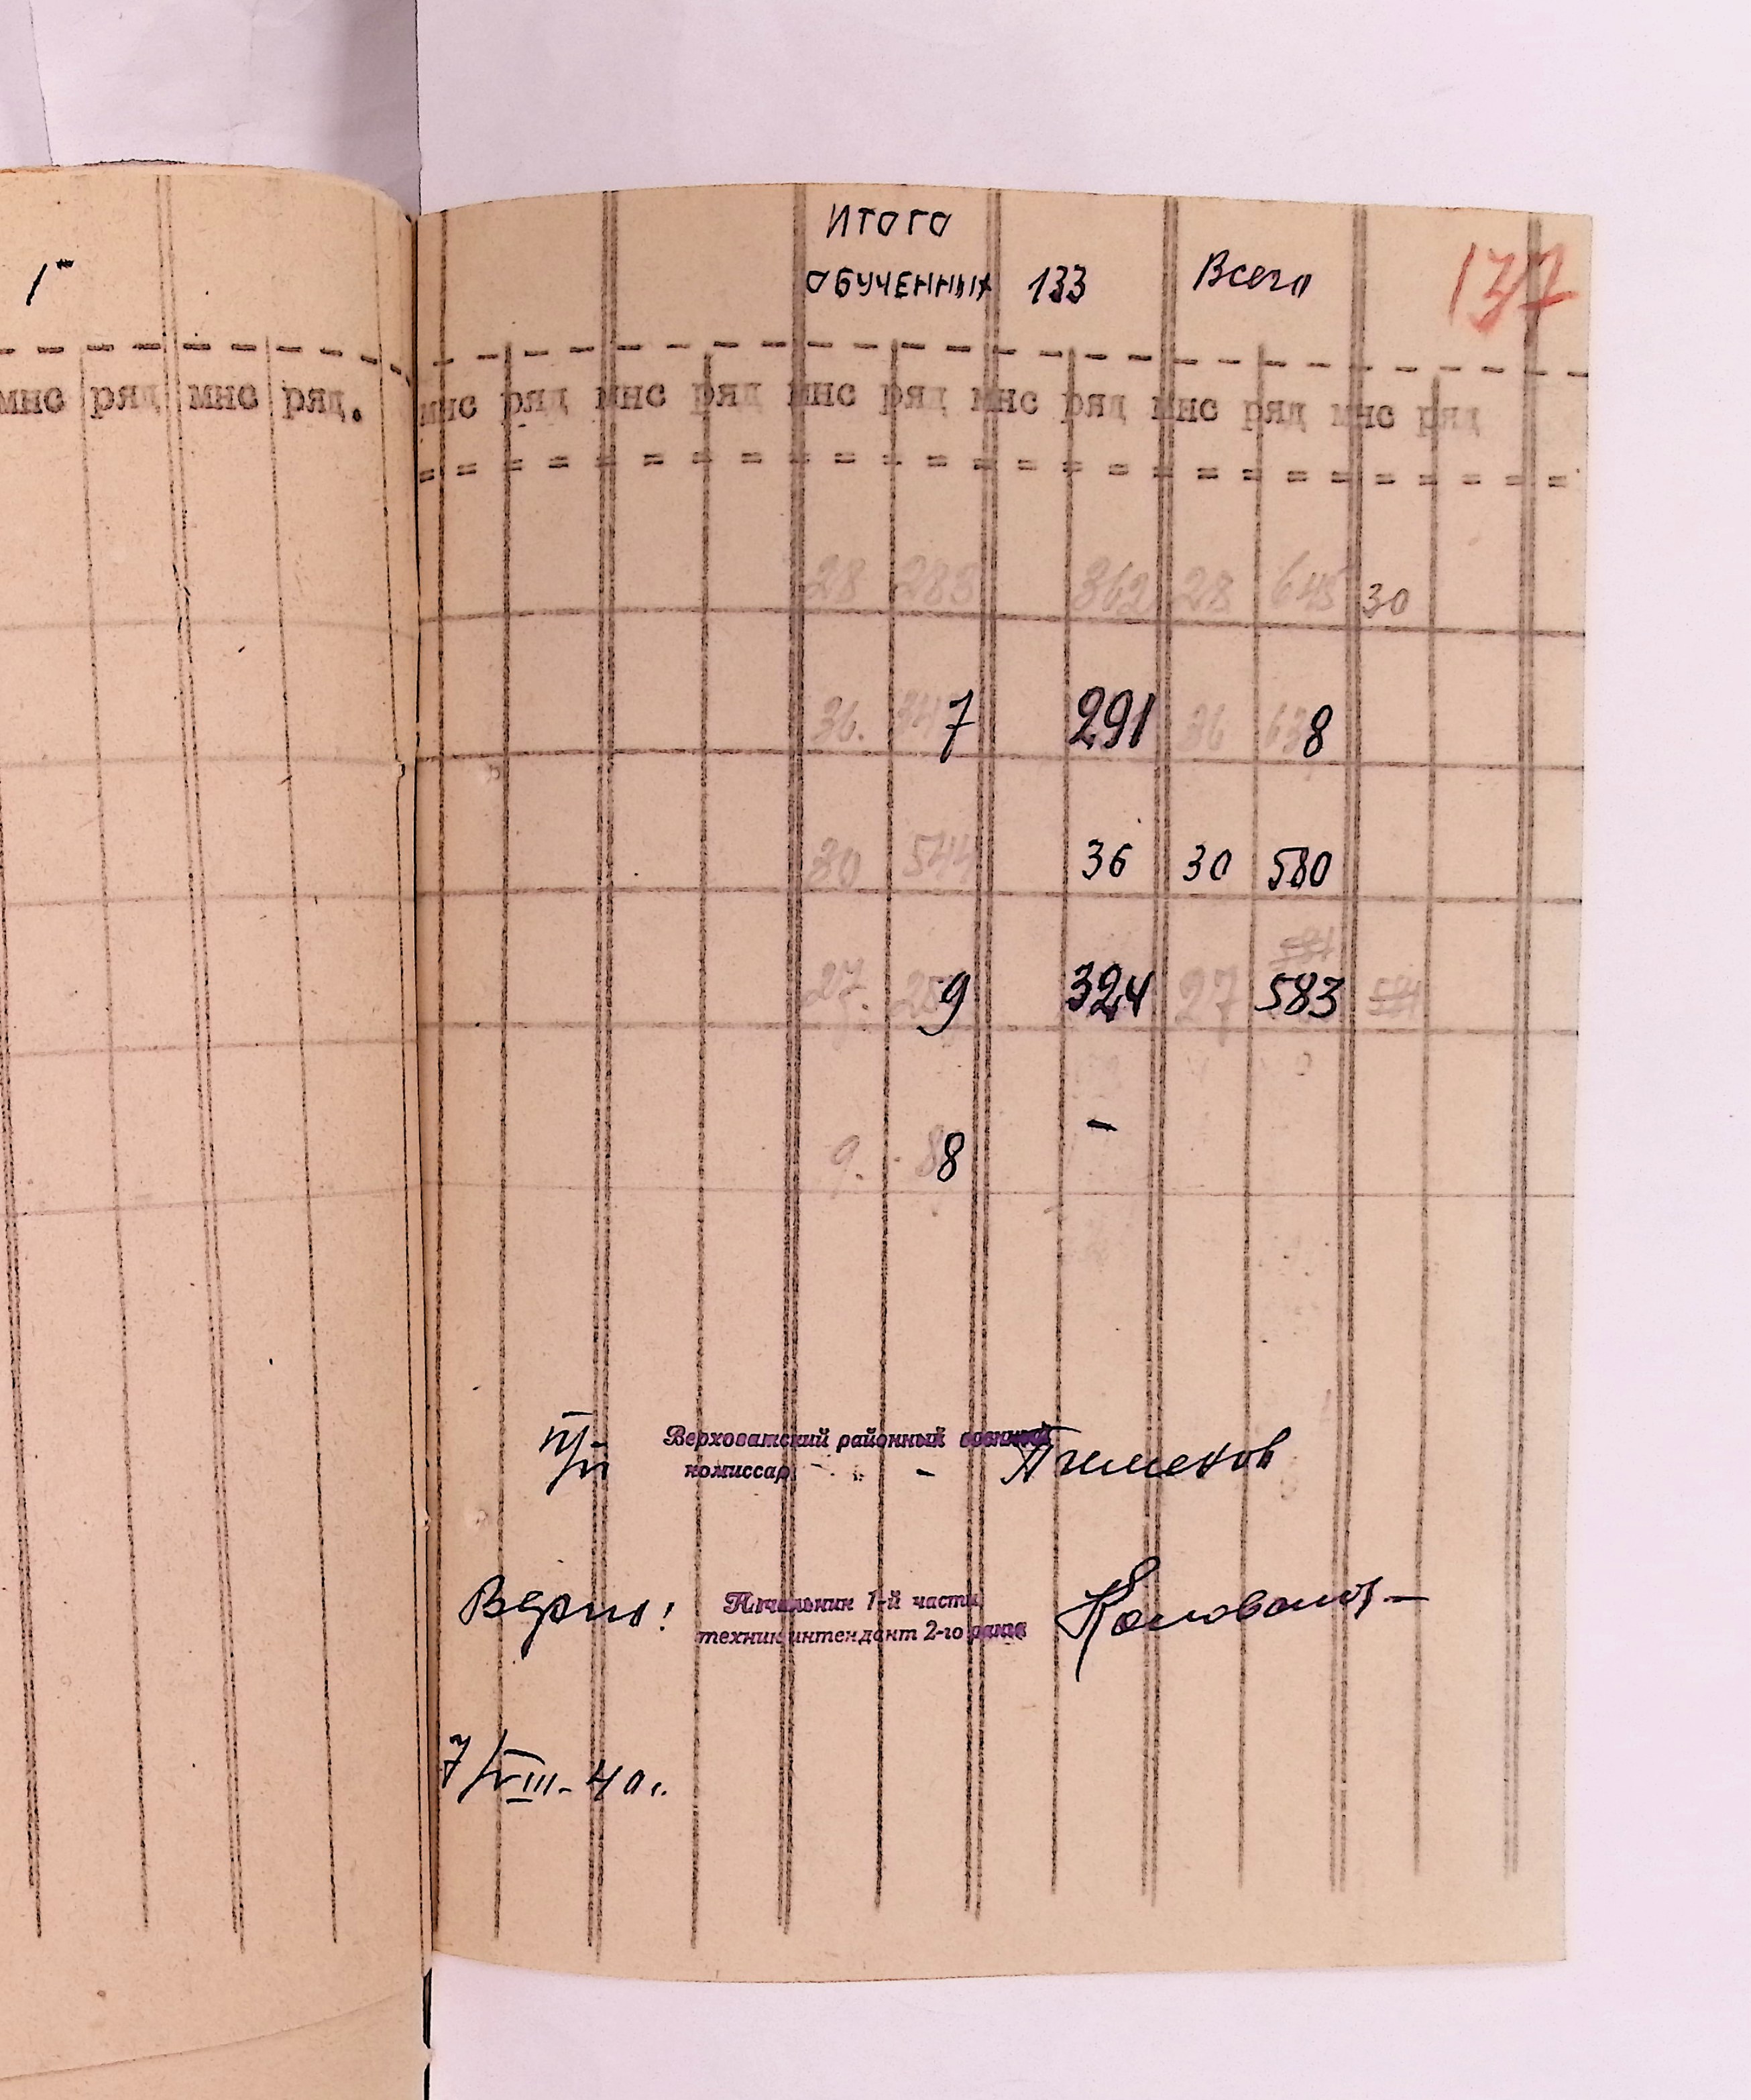 1
Итого
обученных 133 Всего 137
мнс ряд мнс ряд.
мнс ряд мнс ряд мнс ряд мнс ряд мнс ряд мнс ряд
28 283 362 28 645 30
36. 347 291 36 638
30 544 36 30 580
584
27 259 324 27 583 584
9. 88 –
п/п Верховатский районный военный
комиссар – Пименов
Верно! Начальник 1-й части
техник интендант 2-го ранга Коновалов
7/VIII-40 г.